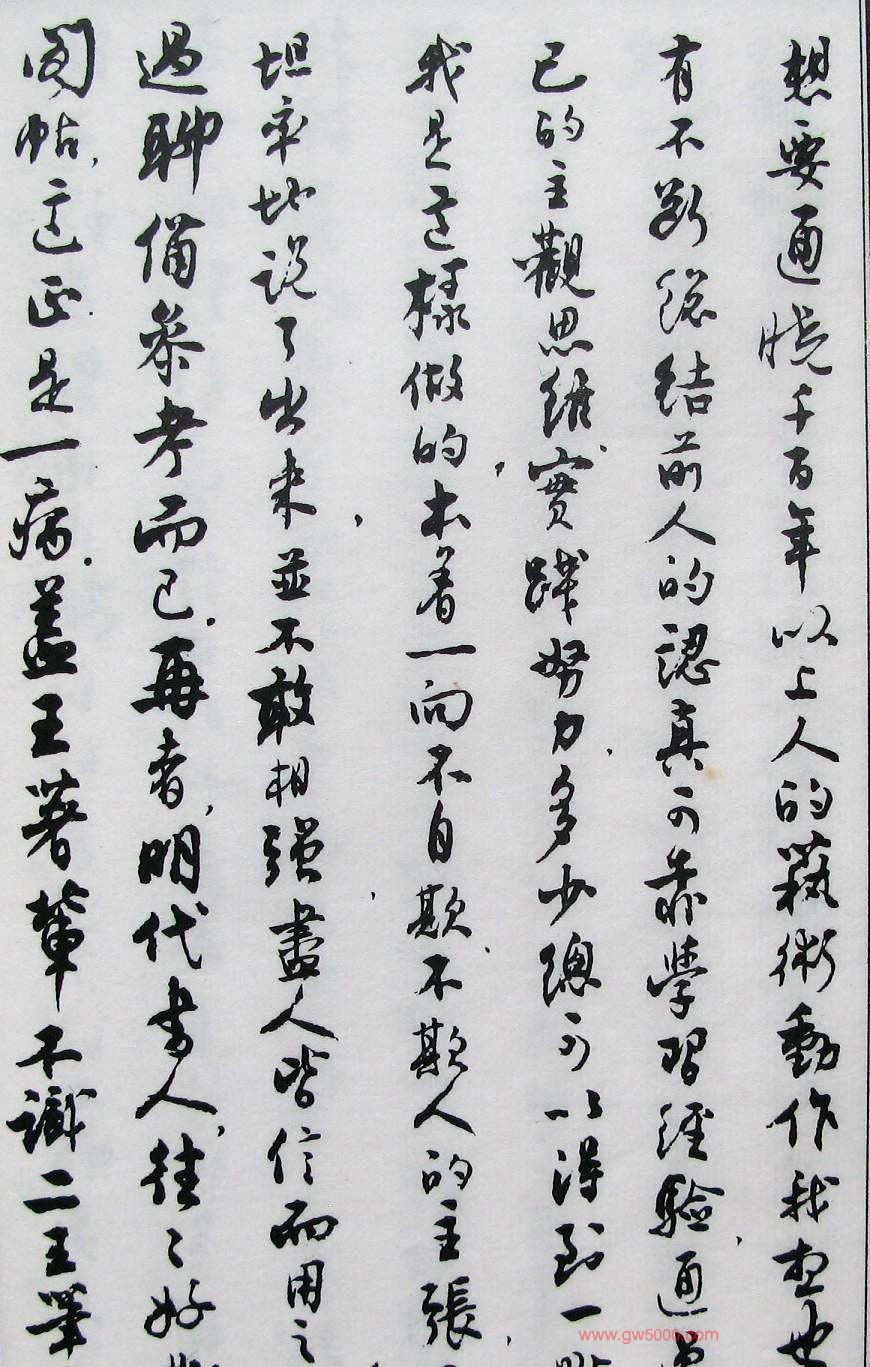 想要通曉千百年以上人的藝術動作我想也
有不斷總結前人的認真可靠學習經驗通過
己的主觀思維實踐努力多少總可以得到一
我是這樣做的本着一向不自欺不欺人的主張
坦率地說了出來並不敢相強盡人皆信而用之
過聊備參考而已再者明代書人往〻好
閣帖這正是一病蓋王著輩不識二王筆
www.gw5000.com